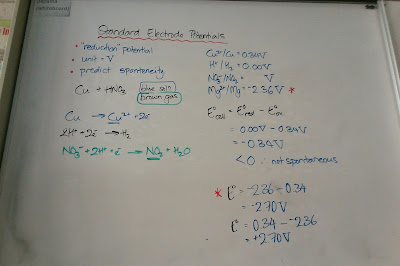 Standard Electrode Potentials
• "reduction" potential
• unit = V
• predict spontaneity
Cu + HNO₃ blue soln
brown gas
Cu → Cu²⁺ + 2e
2H⁺ + 2e → H₂
NO₃⁻ + 2H⁺ + e → NO₂ + H₂O
Cu²⁺/Cu = 0.34V
H⁺/H₂ = 0.00V
NO₃⁻/NO₂ = V
Mg²⁺/Mg = -2.36V *
E°cell = E°red - E°ox
= 0.00V - 0.34V
= -0.34V
<0 ∴ not spontaneous
* E° = -2.36 - 0.34
= -2.70V
E° = 0.34 - -2.36
= +2.70V